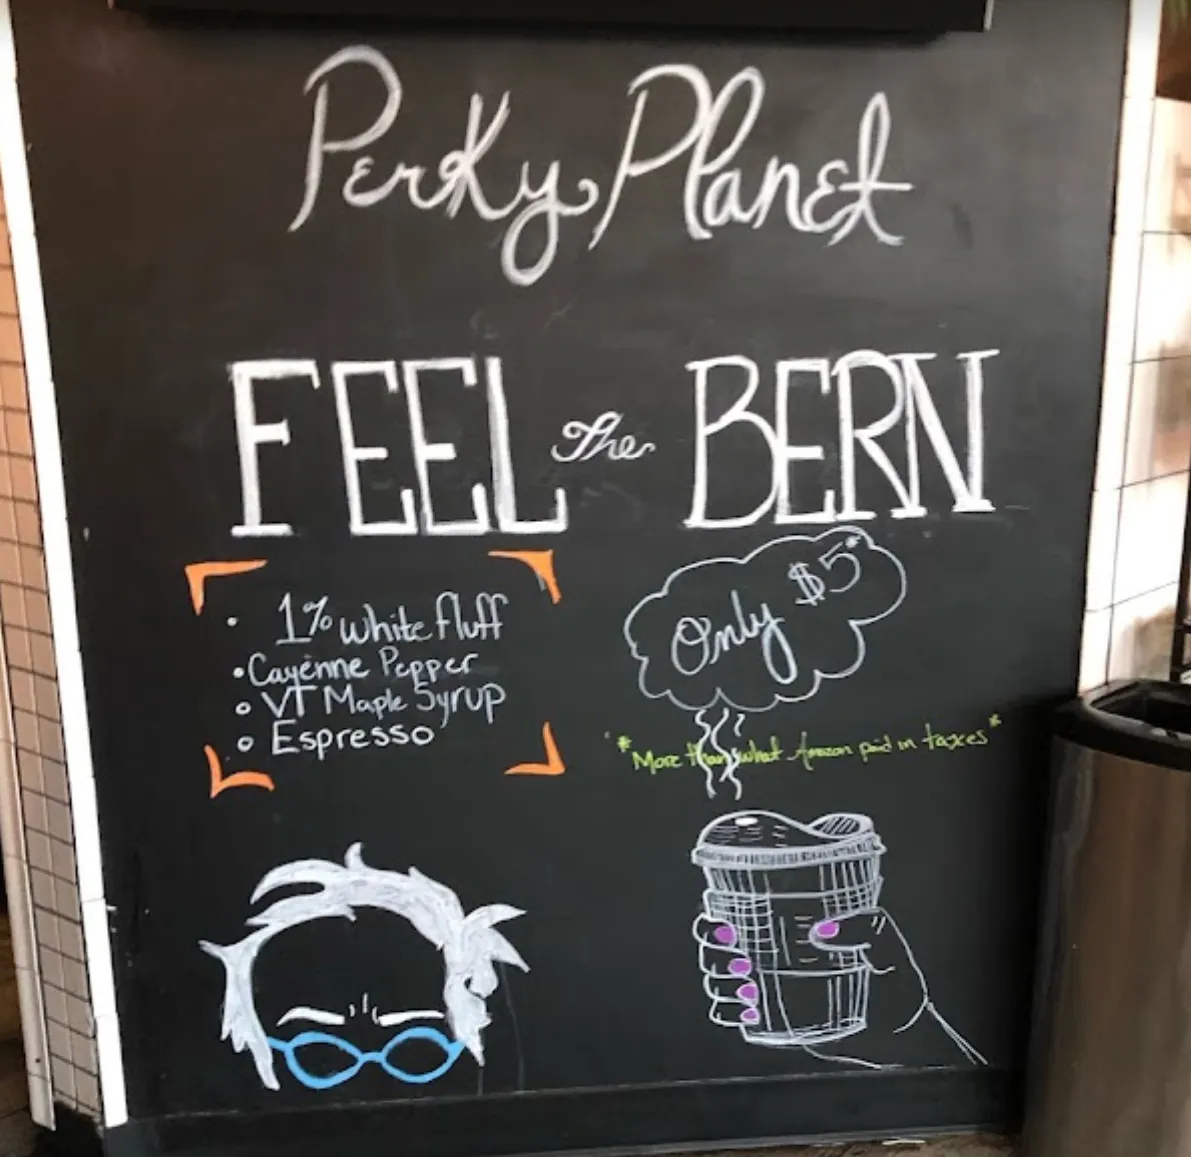 Perky Planet
FEEL The BERN
• 1% White fluff
• Cayenne Pepper
• VT Maple Syrup
• Espresso
Only $5*
*More than what Amazon paid in taxes*